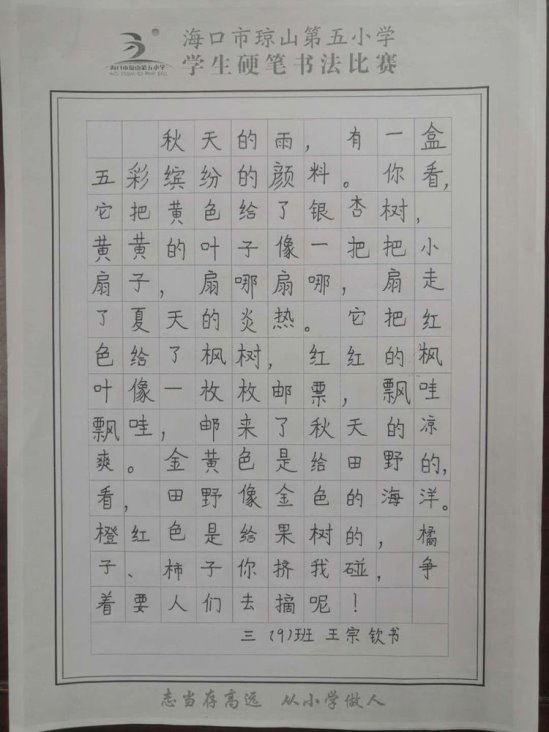 海口市琼山第五小学
学生硬笔书法比赛
海口市琼山第五小学
秋天的雨，有一盒
五彩缤纷的颜料。你看，
它把黄色给了银杏树，
黄黄的叶子像一把把小
扇子，扇哪扇哪，扇走
了夏天的炎热。它把红
色给了枫树，红红的枫
叶像一枚枚邮票，飘哇
飘哇，邮来了秋天的凉
爽。金黄色是给田野的，
看，田野像金色的海洋。
橙红色是给果树的，橘
子、柿子你挤我碰，争
着要人们去摘呢！
三（9）班 王宗钦书
志当存高远 从小学做人